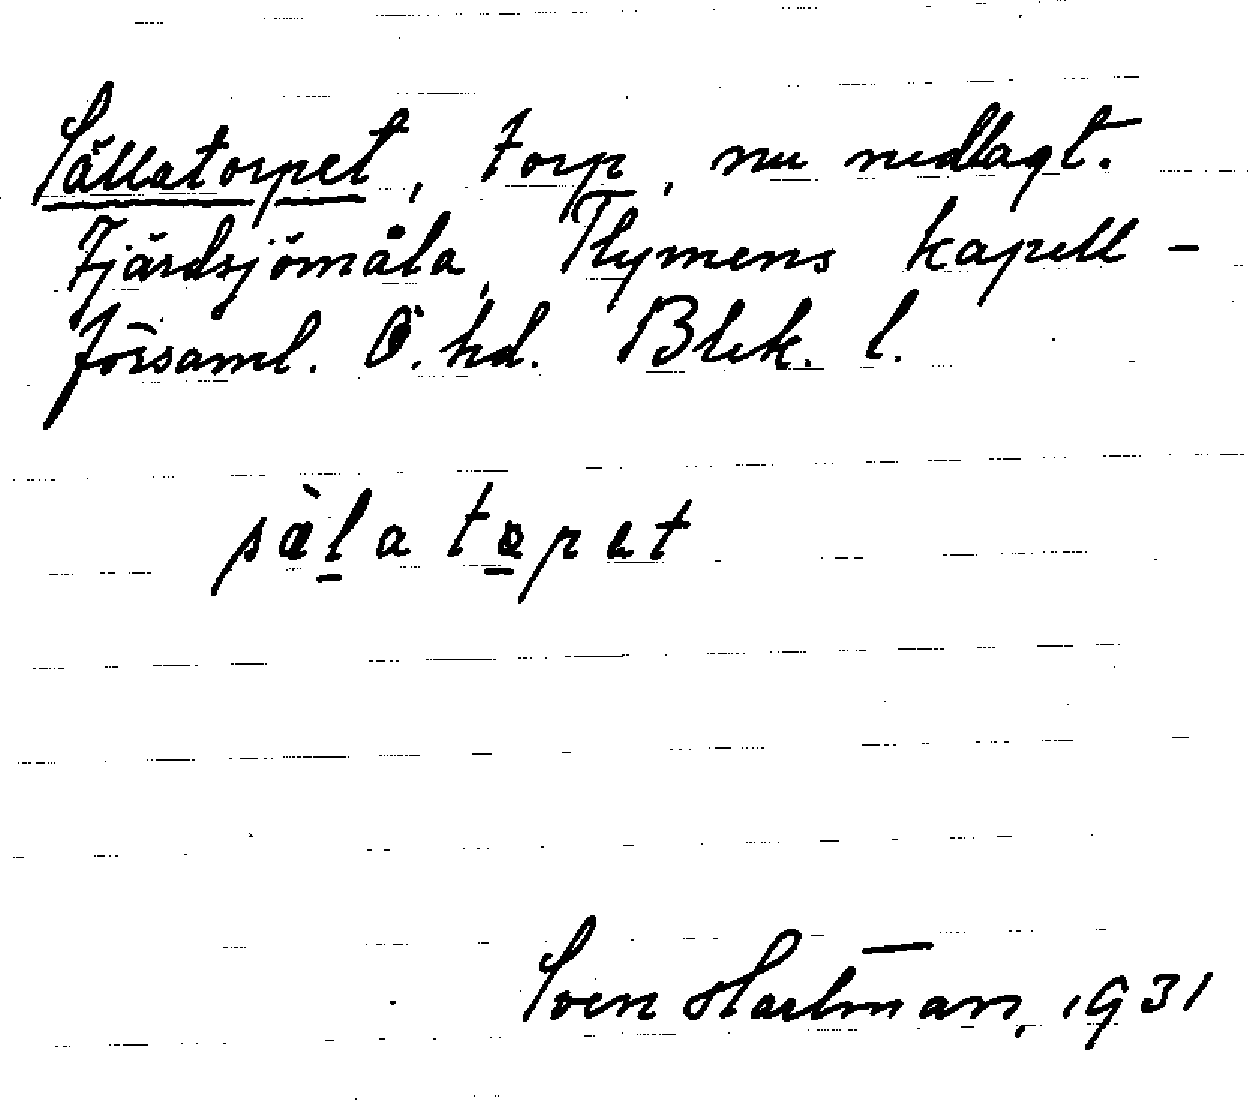 Sällatorpet, torp, nu nedlagt.
Fjärdsjömåla, Flymens kapell-
församl. Ö. hd. Blek. l.
sὰl̲a to̲pet
Sven Hartman, 1931